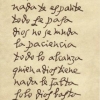 nada te espante
todo se pasa
dios no se muda
la paciencia
todo lo alcanza
quien a dios tiene
nada le falta
solo dios basta